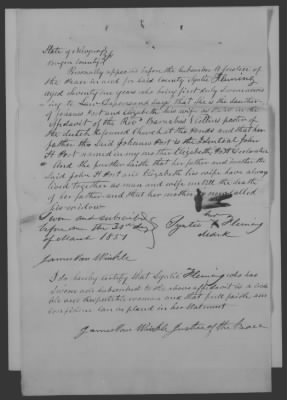 State of New Jersey
Bergen County
Personally appears before the Subscriber a Justice of
the Peace in and for said County Lydia Fleming
aged seventy one years who being first duly sworn accord
ing to Law deposes and says that she is the daughter
of Johannes Hort and Elizabeth his wife as stated in the
affidavit of the Revd Barnabus V Collins pastor
of the dutch Reformed Church at the Ponds and that her
father the said Johannes Hort is the Identical John
H Hort named in my mother Elizabeth Hort
And she further saith that her father and mother the
said John H Hort and Elizabeth his wife have always
lived together as man and wife untill the death
of her father and that her mother
his widow
Sworn and subscribed
before me the 20th day
of March 1851
her
Lydia X Fleming
mark
James Van Winkle
I do hereby certify that Lydia Fleming who has
Sworn and subscribed to the above affidavit is a cred
ible and respectable woman and that full faith and
confidence can be placed in her statement
James Van Winkle Justice of the Peace